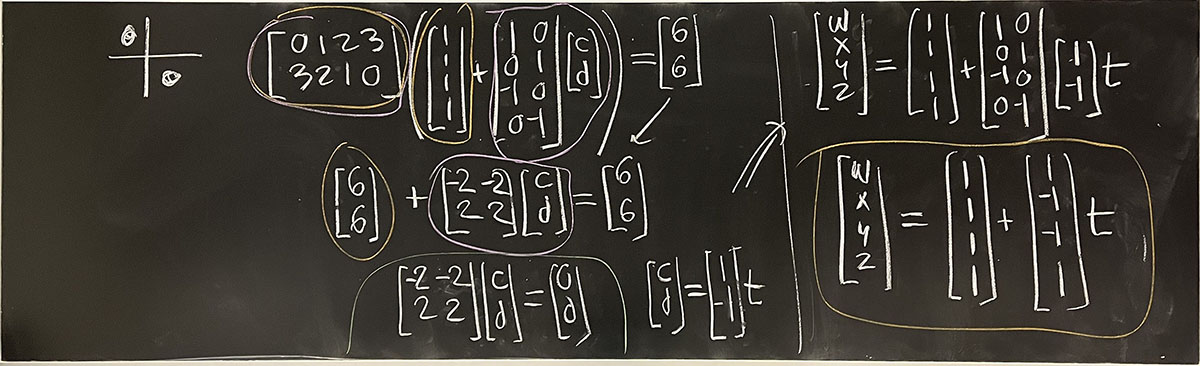 [0 1 2 3; 3 2 1 0] ([1; 1; 1; 1] + [1 0; 0 1; -1 0; 0 -1] [c; d]) = [6; 6]
[6; 6] + [-2 -2; 2 2] [c; d] = [6; 6]
[-2 -2; 2 2] [c; d] = [0; d]
[c; d] = [1; -1] t
[w; x; y; z] = [1; 1; 1; 1] + [1 0; 0 1; -1 0; 0 -1] [1; -1] t
[w; x; y; z] = [1; 1; 1; 1] + [1; -1; -1; 1] t